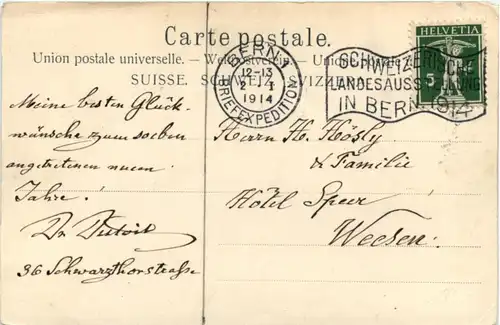 Carte postale.
Union postale universelle. — Weltpostverein. — Unione postale
SUISSE. SCHWEIZ. SVIZZERA.
BERN 1
12-13
2. I
1914
BRIEFEXPEDITION
SCHWEIZERISCHE
LANDESAUSSTELLUNG
IN BERN 1914
HELVETIA
5
Meine besten Glück-
wünsche zum soeben
angetretenen neuen
Jahre!
Dr. Dutoit
36 Schwarzthorstrasse
Herrn H. Hösly
& Familie
Hôtel Speer
Weesen.